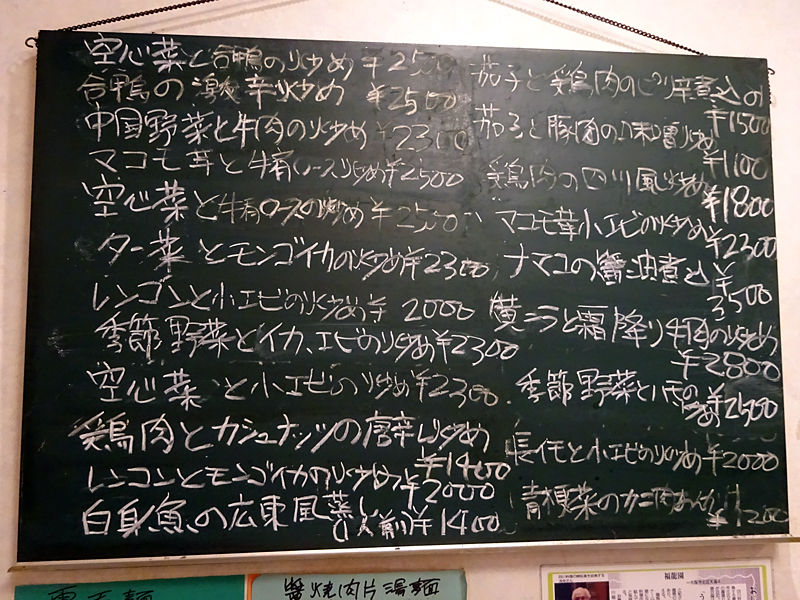 空心菜と合鴨の炒め ¥2500
合鴨の激辛炒め ¥2500
中国野菜と牛肉の炒め ¥2300
マコモ茸と牛肩ロース炒め¥2500
空心菜と牛肩ロースの炒め ¥2500
ター菜とモンゴイカの炒め¥2300
レンコンと小エビの炒め¥2000
季節野菜とイカ、エビの炒め¥2300
空心菜と小エビの炒め¥2300
鶏肉とカシュナッツの唐辛し炒め
¥1400
レンコンとモンゴイカの炒め
¥2000
白身魚の広東風蒸し
(1人前)¥1400
茄子と鶏肉のピリ辛煮込み
¥1500
茄子と豚肉の味噌炒め
¥1100
鶏肉の四川風炒め
¥1800
マコモ茸小エビの炒め
¥2300
ナマコの醤油煮込
¥3500
黄ニラと霜降り牛肉の炒め
¥2800
季節野菜とハモの炒め
長イモと小エビの炒め¥2000
青梗菜のカニ肉あんかけ
¥1200
醬焼肉片湯麺
福龍園